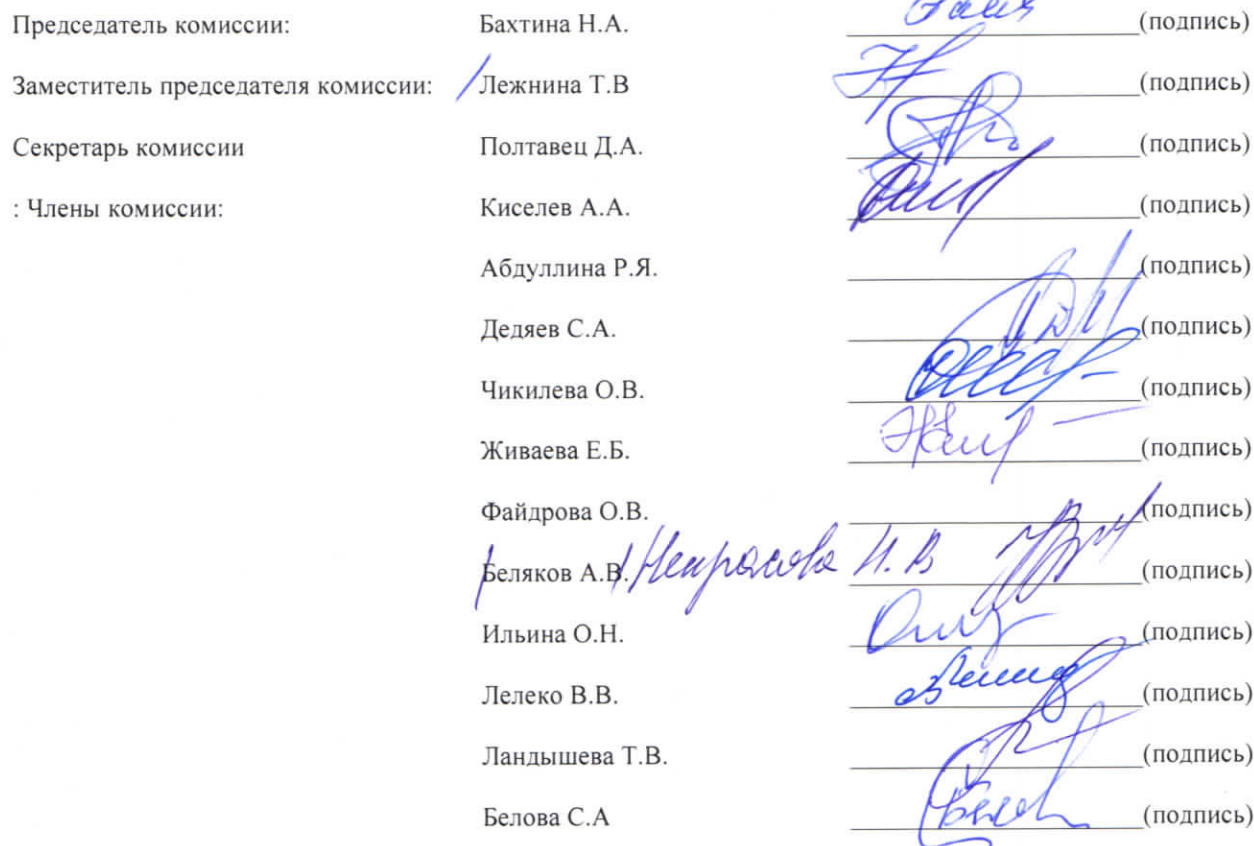 Председатель комиссии: Бахтина Н.А. (подпись)
Заместитель председателя комиссии: / Лежнина Т.В (подпись)
Секретарь комиссии Полтавец Д.А. (подпись)
: Члены комиссии: Киселев А.А. (подпись)
Абдуллина Р.Я. (подпись)
Дедяев С.А. (подпись)
Чикилева О.В. (подпись)
Живаева Е.Б. (подпись)
Файдрова О.В. (подпись)
/Беляков А.В./ Некрасова Н.В (подпись)
Ильина О.Н. (подпись)
Лелеко В.В. (подпись)
Ландышева Т.В. (подпись)
Белова С.А (подпись)